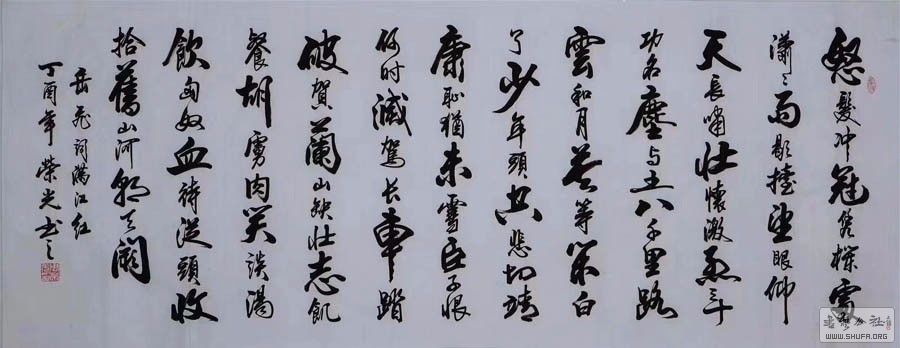 怒髮冲冠凭欄處
瀟〻雨歇擡望眼仰
天長嘯壯懷激烈三十
功名塵與土八千里路
雲和月莫等閒白
了少年頭空悲切靖
康恥猶未雪臣子恨
何时滅駕长車踏
破賀蘭山缺壯志飢
餐胡虜肉笑談渴
飲匈奴血待從頭收
拾舊山河朝天闕
岳飛詞滿江红
丁酉年榮光书之
WWW.SHUFA.ORG